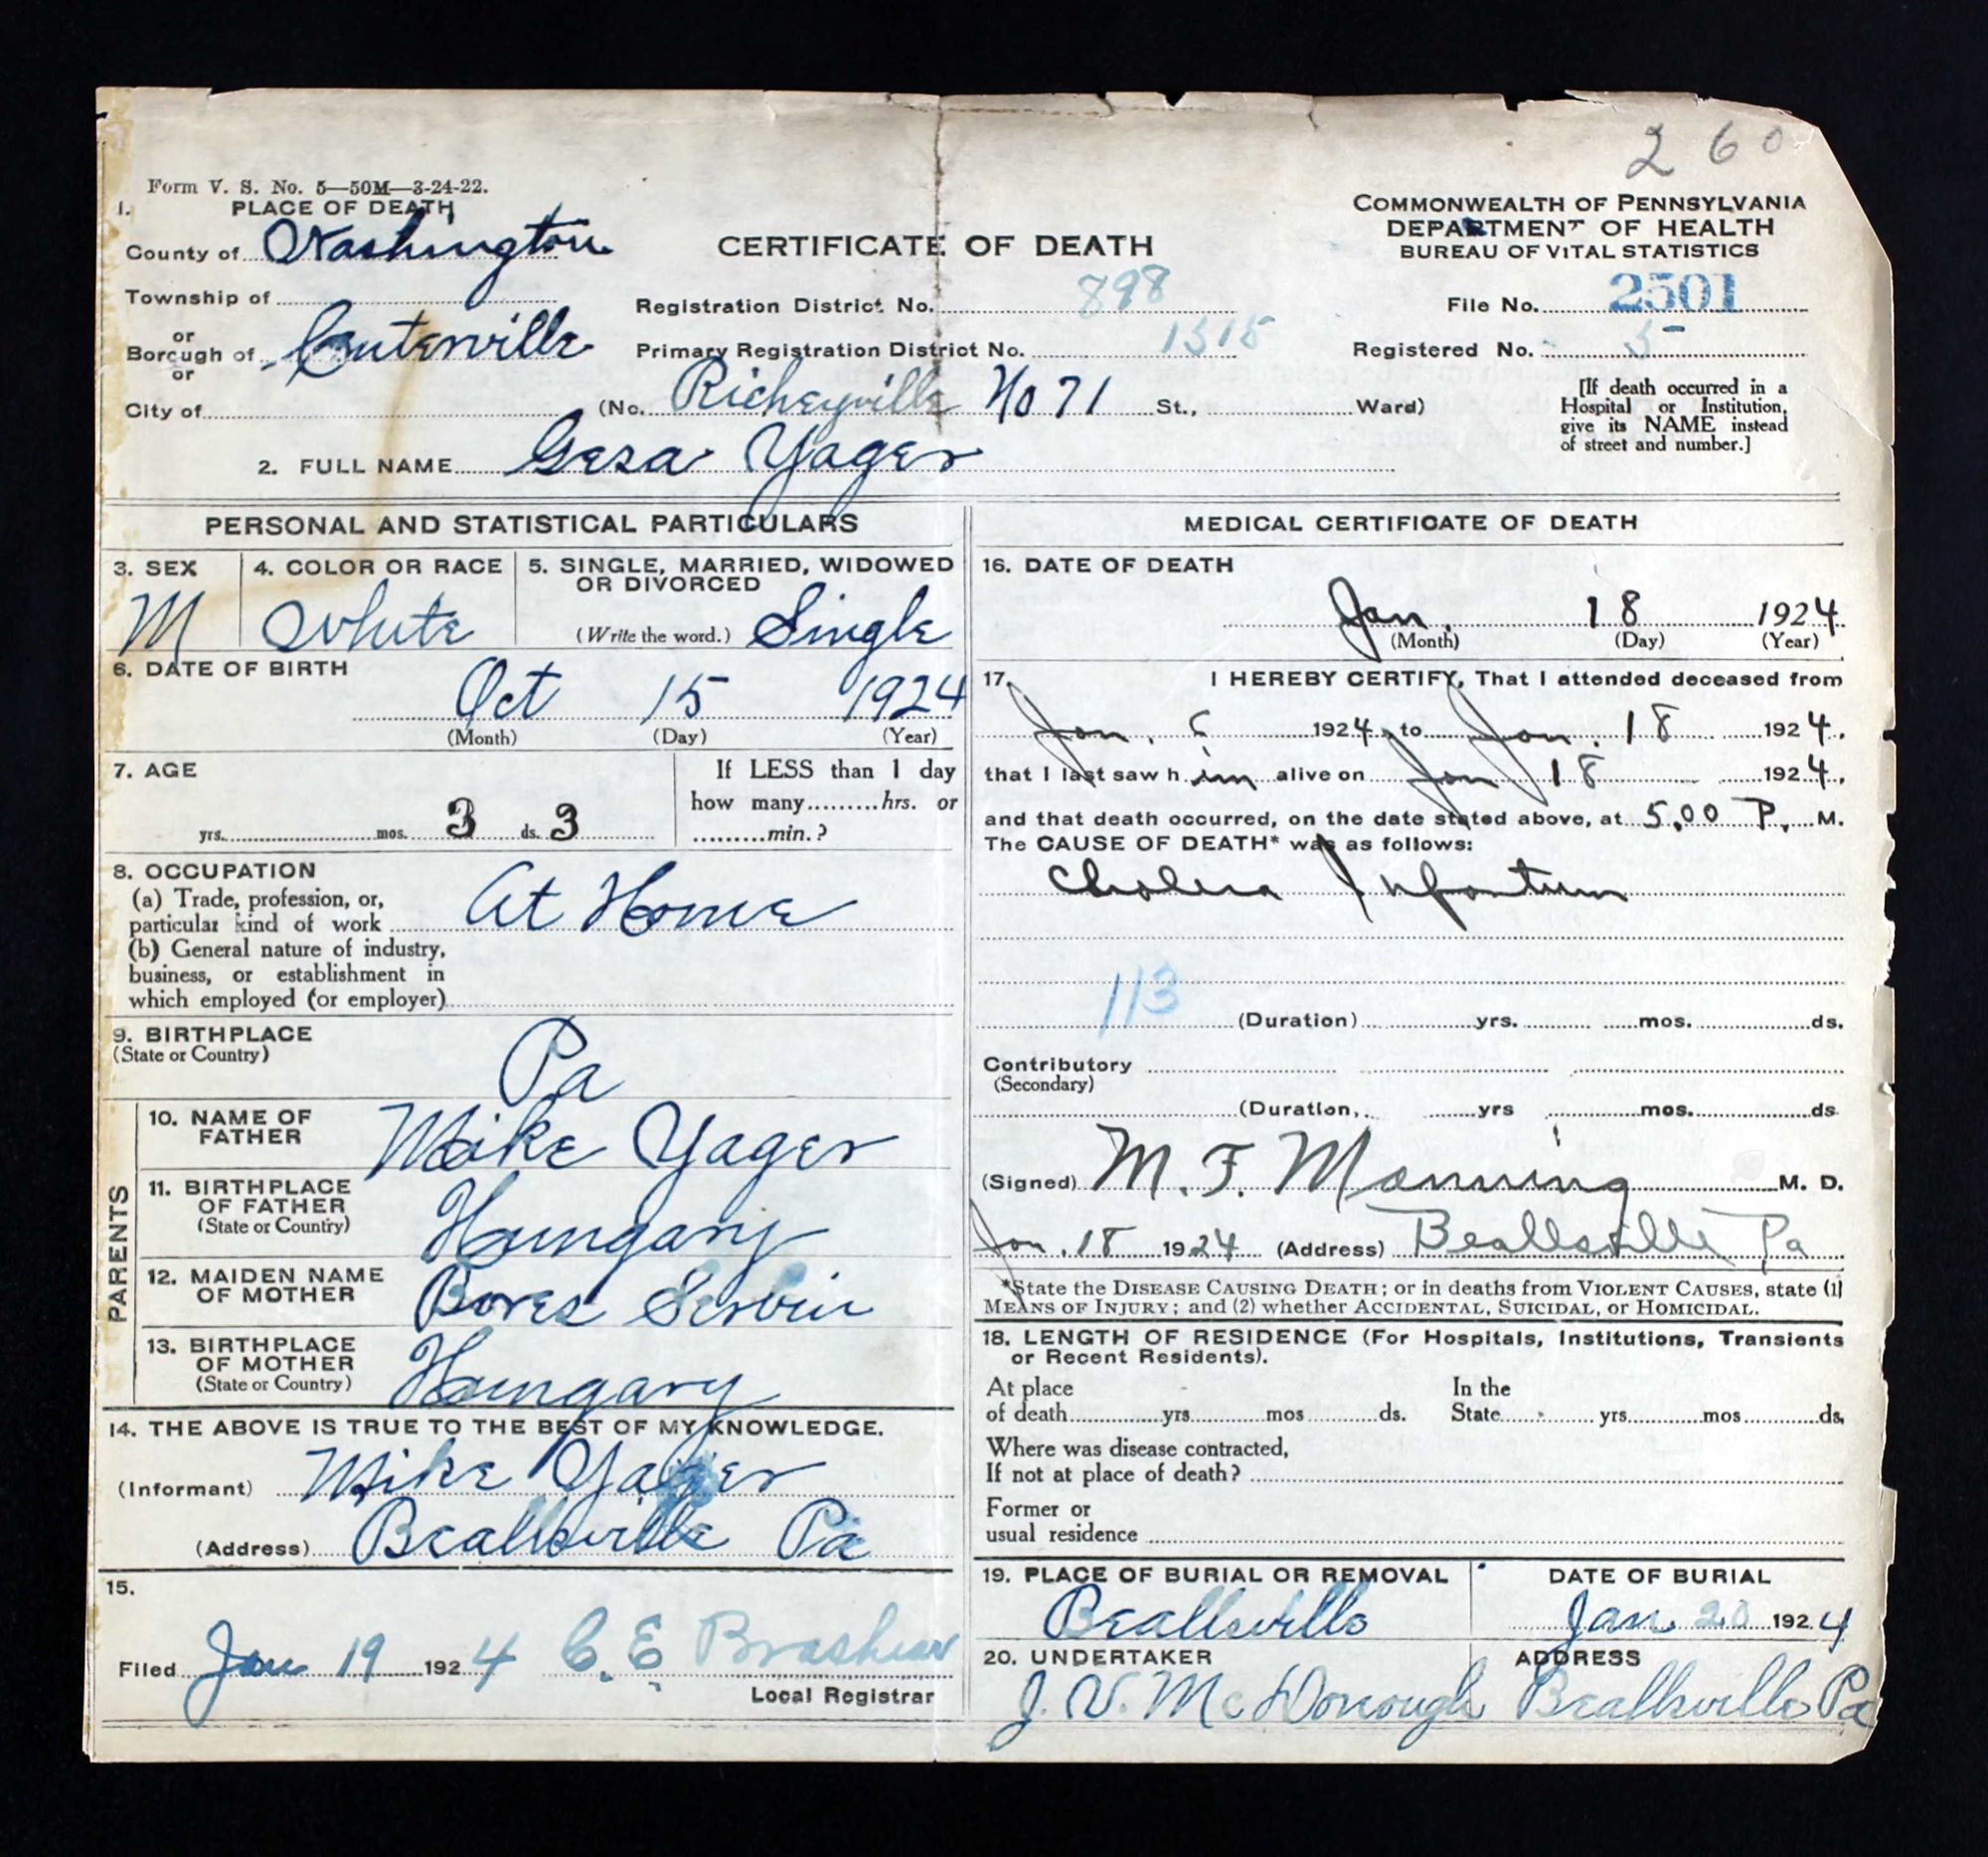 260
Form V. S. No. 5—50M—3-24-22.
1. PLACE OF DEATH
County of Washington
Township of
or
Borough of Centerville
or
City of
CERTIFICATE OF DEATH
Registration District No. 898
Primary Registration District No. 1315
(No. Richeyville No 71 St., Ward)
COMMONWEALTH OF PENNSYLVANIA
DEPARTMENT OF HEALTH
BUREAU OF VITAL STATISTICS
File No. 2501
Registered No. 5
[If death occurred in a
Hospital or Institution,
give its NAME instead
of street and number.]
2. FULL NAME Geza Yager
PERSONAL AND STATISTICAL PARTICULARS
3. SEX M
4. COLOR OR RACE White
5. SINGLE, MARRIED, WIDOWED
OR DIVORCED
(Write the word.) Single
6. DATE OF BIRTH
Oct 15 1924
(Month) (Day) (Year)
7. AGE
yrs. mos. 3 ds. 3
If LESS than 1 day
how many hrs. or
min.?
8. OCCUPATION
(a) Trade, profession, or,
particular kind of work At Home
(b) General nature of industry,
business, or establishment in
which employed (or employer)
9. BIRTHPLACE
(State or Country)
Pa
PARENTS
10. NAME OF
FATHER Mike Yager
11. BIRTHPLACE
OF FATHER
(State or Country) Hungary
12. MAIDEN NAME
OF MOTHER Bores
13. BIRTHPLACE
OF MOTHER
(State or Country) Hungary
14. THE ABOVE IS TRUE TO THE BEST OF MY KNOWLEDGE.
(Informant) Mike Yager
(Address) Beallsville Pa
15.
Filed Jan 19 1924 C. E. Brashear
Local Registrar
MEDICAL CERTIFICATE OF DEATH
16. DATE OF DEATH
Jan. 18 1924
(Month) (Day) (Year)
17. I HEREBY CERTIFY, That I attended deceased from
Jan. 1924, to Jan. 18 1924,
that I last saw him alive on Jan 18 1924,
and that death occurred, on the date stated above, at 5.00 P. M.
The CAUSE OF DEATH* was as follows:
Cholera Infantum
113
(Duration) yrs. mos. ds.
Contributory
(Secondary)
(Duration, yrs mos. ds
(Signed) M. F. Manning M. D.
Jan. 18 1924 (Address) Beallsville Pa
*State the DISEASE CAUSING DEATH; or in deaths from VIOLENT CAUSES, state (1)
MEANS OF INJURY; and (2) whether ACCIDENTAL, SUICIDAL, or HOMICIDAL.
18. LENGTH OF RESIDENCE (For Hospitals, Institutions, Transients
or Recent Residents).
At place
of death yrs mos ds.
In the
State yrs. mos ds.
Where was disease contracted,
If not at place of death?
Former or
usual residence
19. PLACE OF BURIAL OR REMOVAL
Beallsville
DATE OF BURIAL
Jan 20 1924
20. UNDERTAKER
J. V. McDonough
ADDRESS
Beallsville Pa